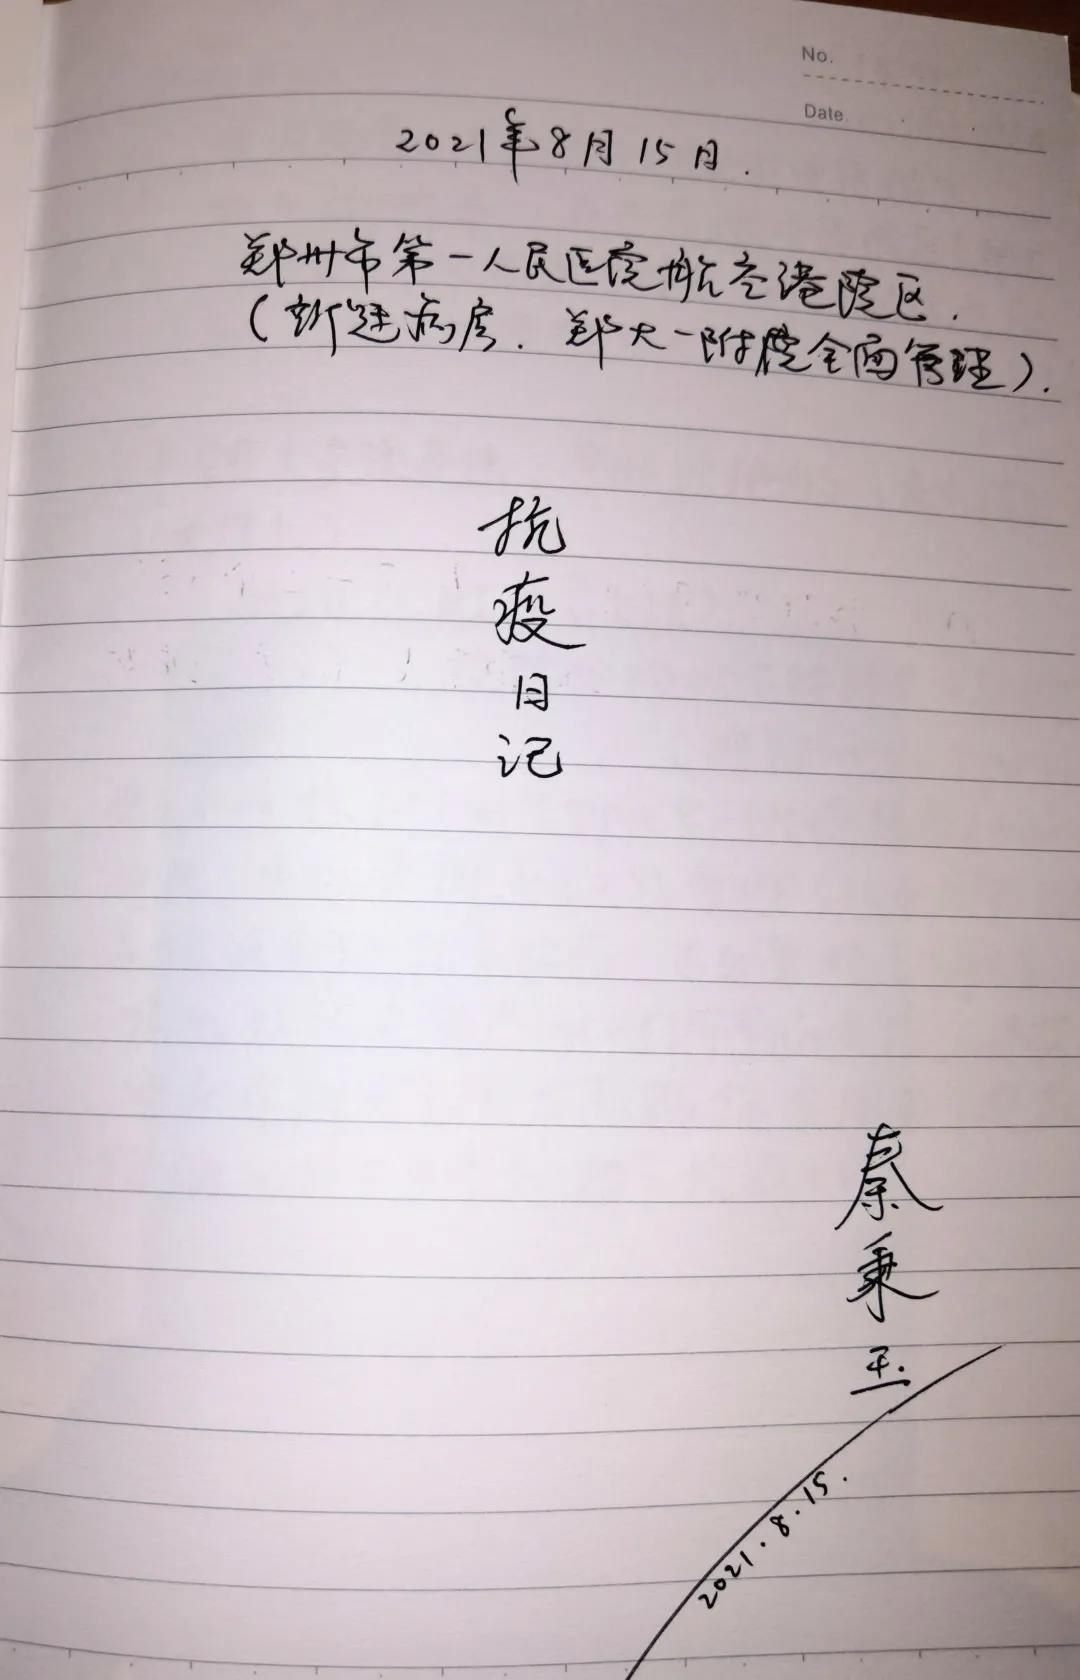 No.
Date
2021年8月15日.
郑州市第一人民医院航空港院区.
(新冠病房. 郑大一附院全面管理).
抗
疫
日
记
秦
秉
玉.
2021.8.15.